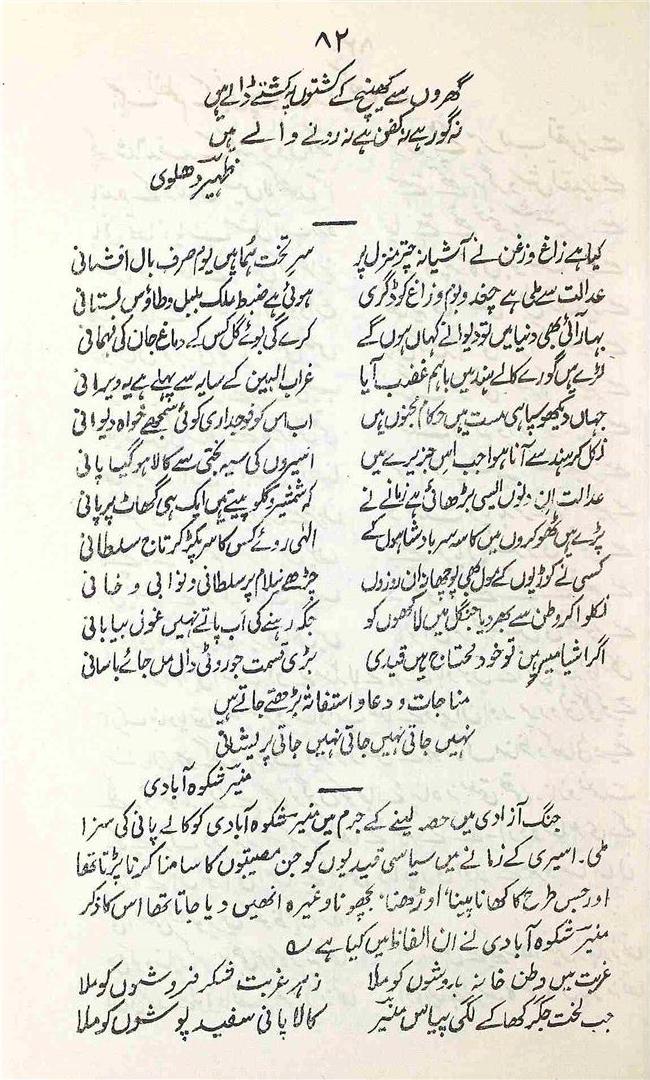 ۸۲
گھروں سے کھینچ کے کشتوں پہ کشتے ڈالے ہیں
نہ گور ہے نہ کفن ہے نہ رونے والے ہیں
ظہیر دھلوی
کیا ہے زاغ و زغن نے آشیانہ چترِ منزل پر سرِ تخت ہما ہیں بوم صرف بال افشانی
عدالت سے ملی ہے چغد و بوم و زاغ کو ڈگری ہوئی ہے ضبط ملک بلبل و طاؤس بستانی
بہار آئی بھی دنیا میں تو دیوانے کہاں ہوں گے کرے گی بوئے گل کس کے دماغ جان کی مہمانی
لڑے ہیں گورے کالے ہند میں باہم غضب آیا غراب البین کے سایہ سے پہلے ہے یہ ویرانی
جہاں دیکھو سپاہی مست ہیں حکام مجنوں ہیں اب اس کو فوجداری کوئی سمجھے خواہ دیوانی
نکل کر ہند سے آنا ہوا جب اس جزیرے میں اسیروں کی سیہ بختی سے کالا ہو گیا پانی
عدالت ان دنوں ایسی بڑھائی ہے زمانے نے کہ شمشیر و گلو پیتے ہیں ایک ہی گھاٹ پر پانی
پڑے ہیں ٹھوکروں میں کاسہ سر بادشاہوں کے الٰہی روئے کس کا سر پکڑ کر تاج سلطانی
کسی نے کوڑیوں کے مول بھی پوچھا نہ ان روزوں چڑھے نیلام پر سلطانی و نوابی و خانی
نکلوا کر وطن سے بھر دیا جنگل میں لاکھوں کو جگہ رہنے کی اب پاتے نہیں غول بیابانی
اگر اشیا میسر ہیں تو خود محتاج ہیں قیدی بڑی قسمت جو روٹی دال مل جائے بآسانی
مناجات و دعا و استغاثہ بڑھتے جاتے ہیں
نہیں جاتی نہیں جاتی نہیں جاتی پریشانی
منیر شکوہ آبادی
جنگ آزادی میں حصہ لینے کے جرم میں منیر شکوہ آبادی کو کالے پانی کی سزا
ملی۔ اسیری کے زمانے میں سیاسی قیدیوں کو جن مصیبتوں کا سامنا کرنا پڑتا تھا
اور جس طرح کا کھانا پینا، اوڑھنا، بچھونا وغیرہ انھیں دیا جاتا تھا اس کا ذکر
منیر شکوہ آبادی نے ان الفاظ میں کیا ہے ؎
غربت میں وطن خانہ بدوشوں کو ملا زہر غربت شکر فروشوں کو ملا
جب لخت جگر کھا کے لگی پیاس منیر کالا پانی سفید پوشوں کو ملا